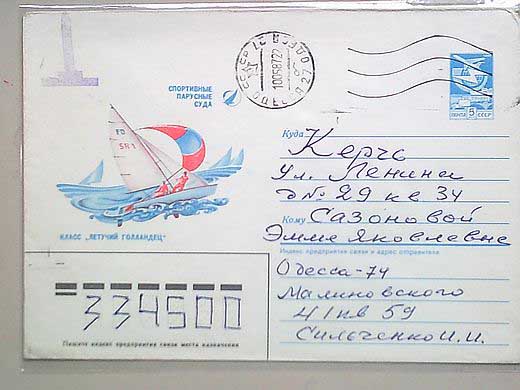 СПОРТИВНЫЕ
ПАРУСНЫЕ
СУДА
FD
SR 1
КЛАСС „ЛЕТУЧИЙ ГОЛЛАНДЕЦ"
СССР
ОДЕССА
10058722
ПОЧТА 5 СССР
Куда Керчь
ул. Ленина
д № 29 кв 34
Кому Сазоновой
Эмме Яковлевне
Индекс предприятия связи и адрес отправителя
Одесса-74
Малиновского
41 кв 59
Сильченко И. И.
334500
Пишите индекс предприятия связи места назначения